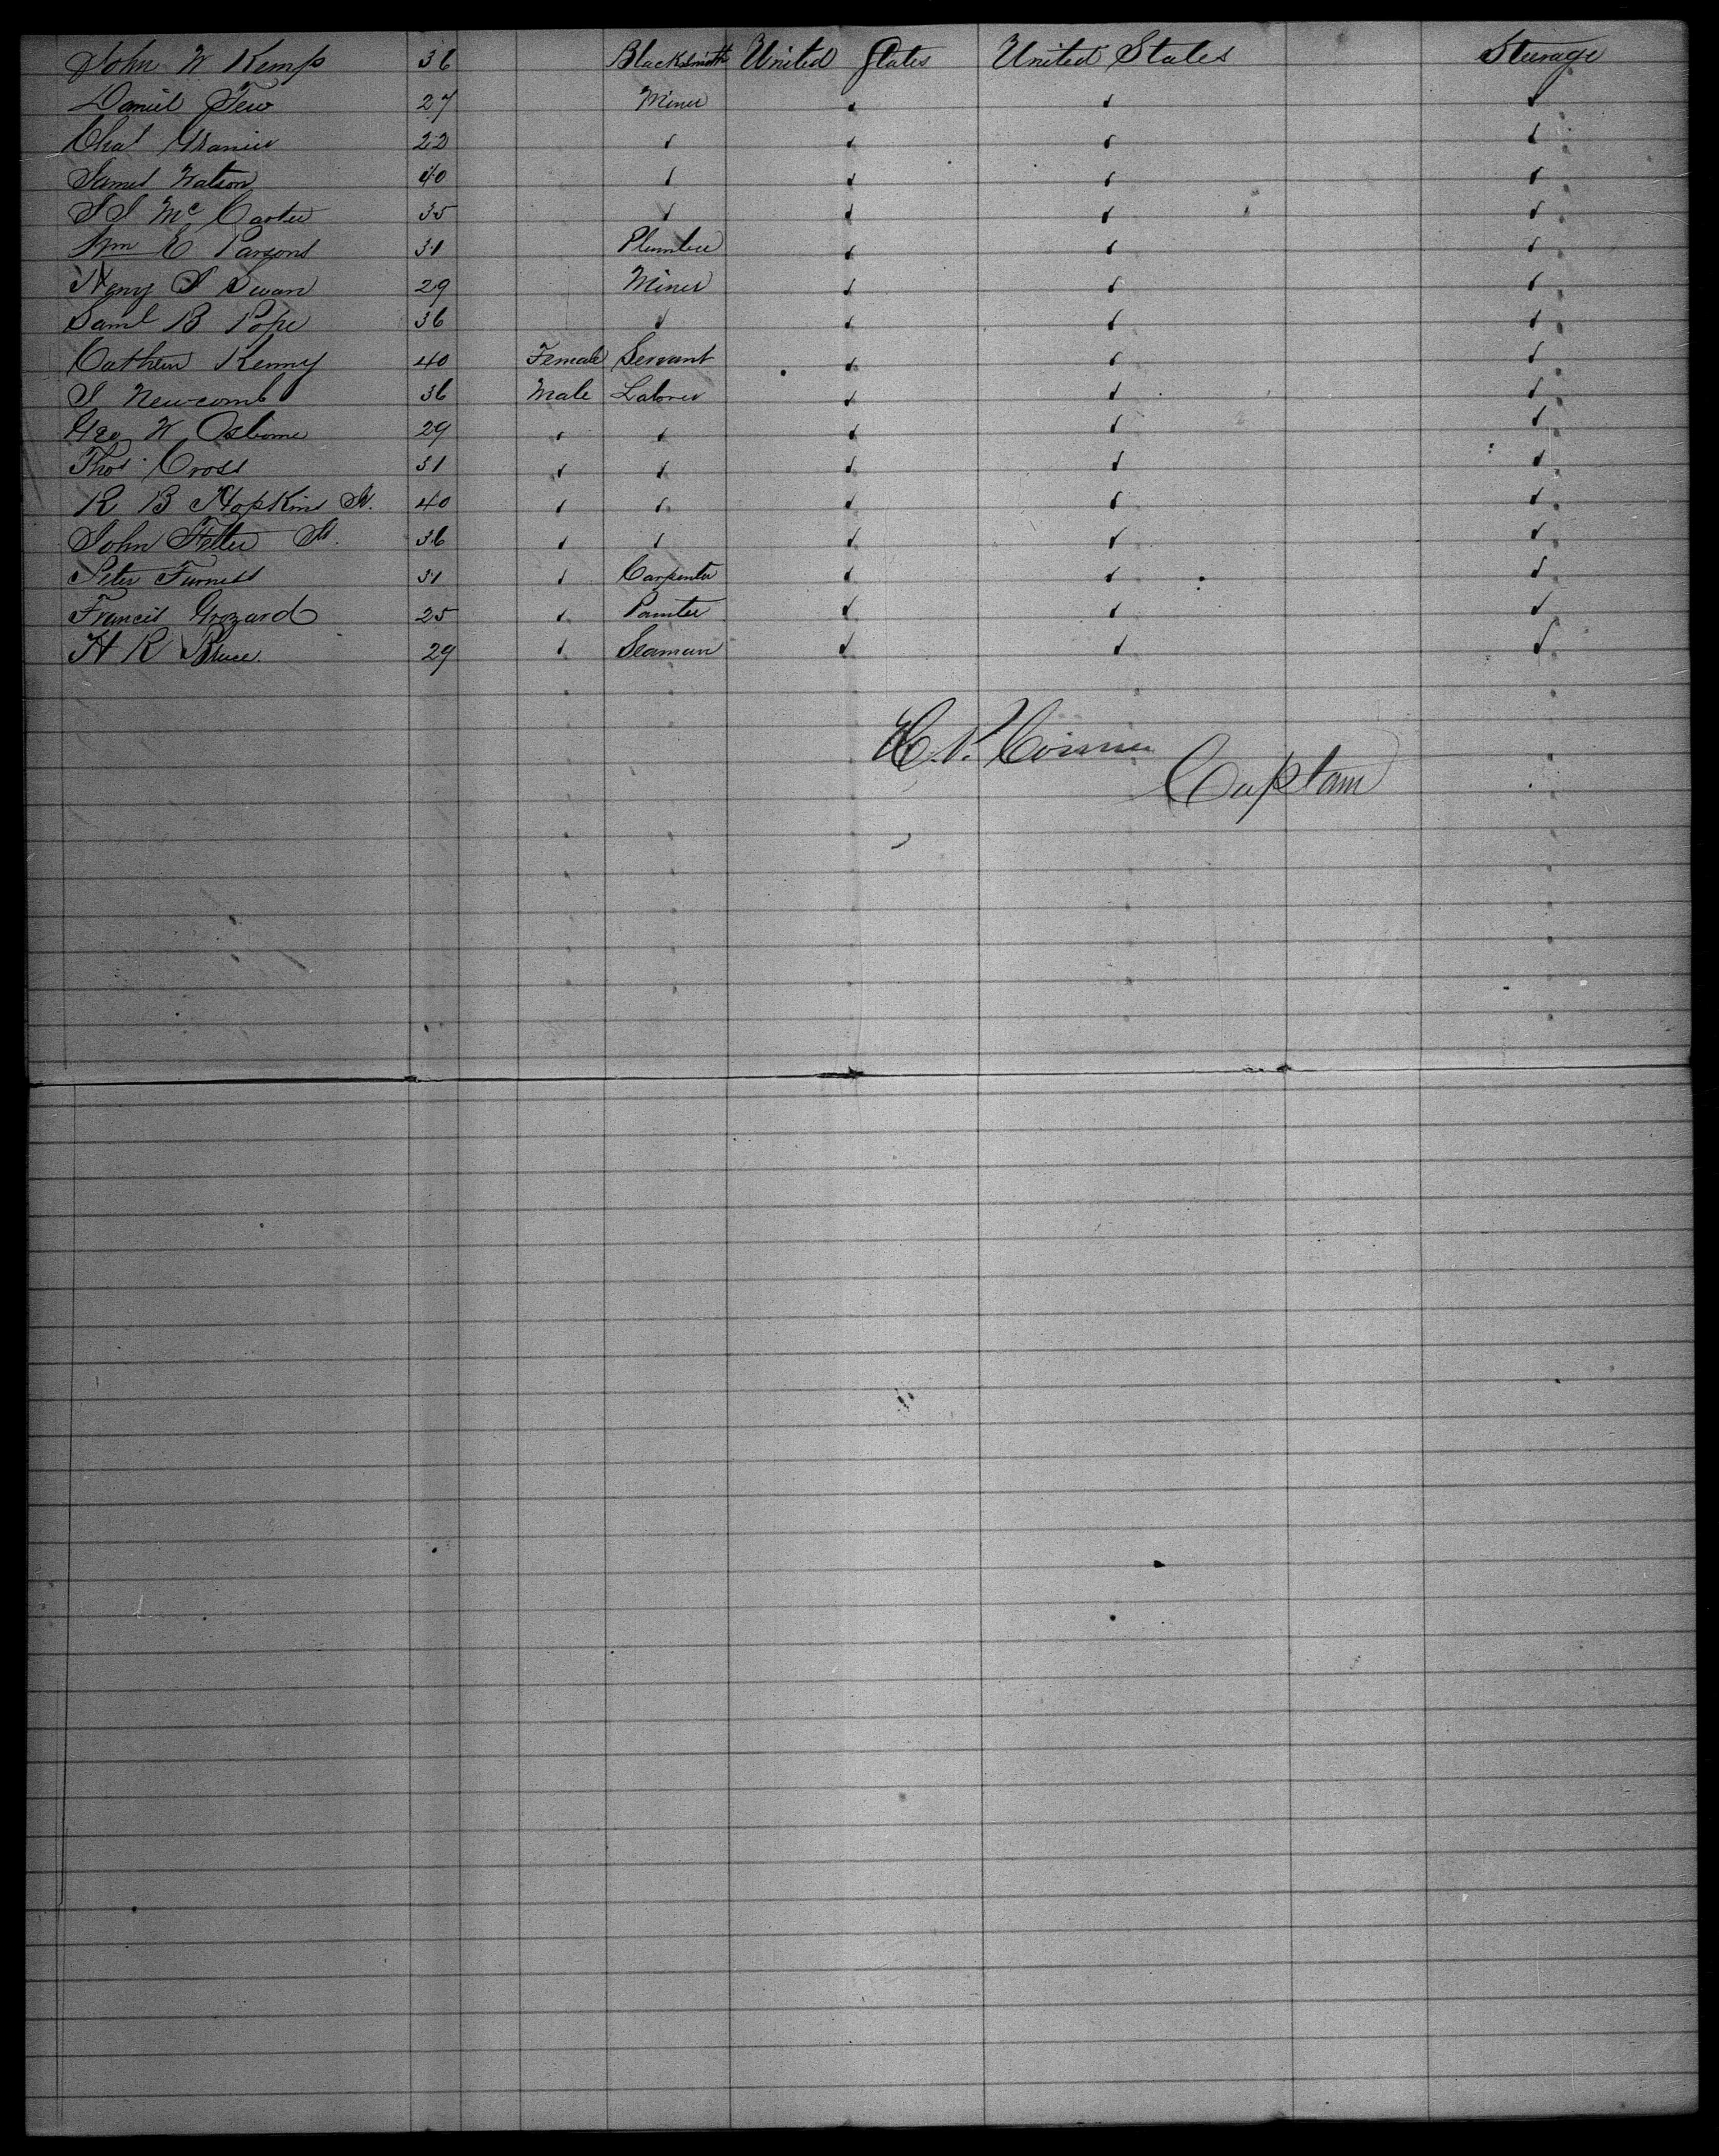 John W Kemp 36 Blacksmith United States United States Steerage
Daniel Tew 27 Miner ✓ ✓ ✓
Chas 22 ✓ ✓ ✓ ✓
James Watson 40 ✓ ✓ ✓ ✓
Mc Carter 35 ✓ ✓ ✓ ✓
Wm E Parsons 31 Plumber ✓ ✓ ✓
Henry S Swan 29 Miner ✓ ✓ ✓
Saml B Pope 36 ✓ ✓ ✓ ✓
Kenny 40 Female Servant ✓ ✓ ✓
Newcomb 36 Male Laborer ✓ ✓ ✓
Geo W Osborne 29 ✓ ✓ ✓ ✓ ✓
Thos Cross 31 ✓ ✓ ✓ ✓ ✓
R B Hopkins 40 ✓ ✓ ✓ ✓ ✓
John 36 ✓ ✓ ✓ ✓ ✓
Peter Furness 31 ✓ Carpenter ✓ ✓ ✓
Francis Grozard 25 ✓ Painter ✓ ✓ ✓
H R Bruce. 29 ✓ Seaman ✓ ✓ ✓
Captain